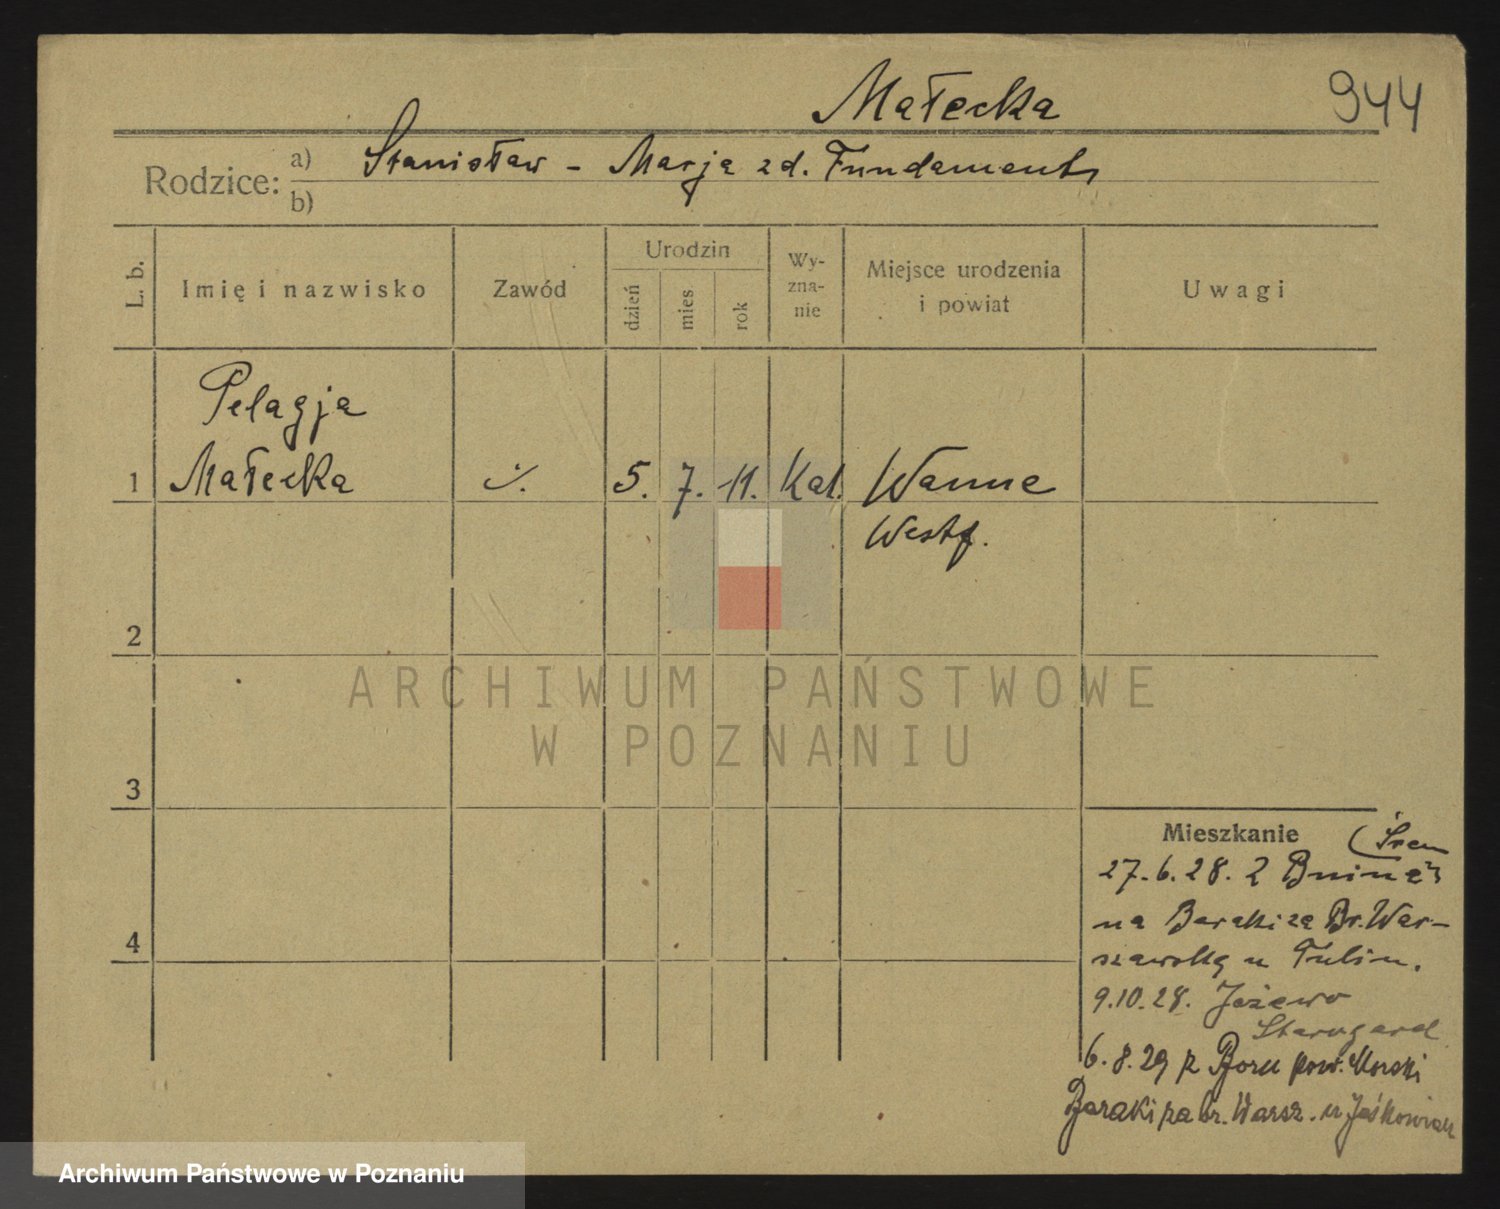 Małecka 944
Rodzice: a) Stanisław - Marja zd. Fundament
b)
L. b. Imię i nazwisko Zawód Urodzin dzień mies rok Wy-zna-nie Miejsce urodzenia i powiat Uwagi
Pelagja
1 Małecka ./. 5. 7. 11. Kat. Wanne
Westf.
2
ARCHIWUM PAŃSTWOWE
W POZNANIU
3
Mieszkanie (Śrem
27.6.28. z Bnina
na Baraki za Br. War-
szawską u Tulin.
9.10.28. Jeżewo
Starogard
6.8.29 z Boru pow. Morski
Baraki za br. Warsz. u Jaśkowiak
4
Archiwum Państwowe w Poznaniu